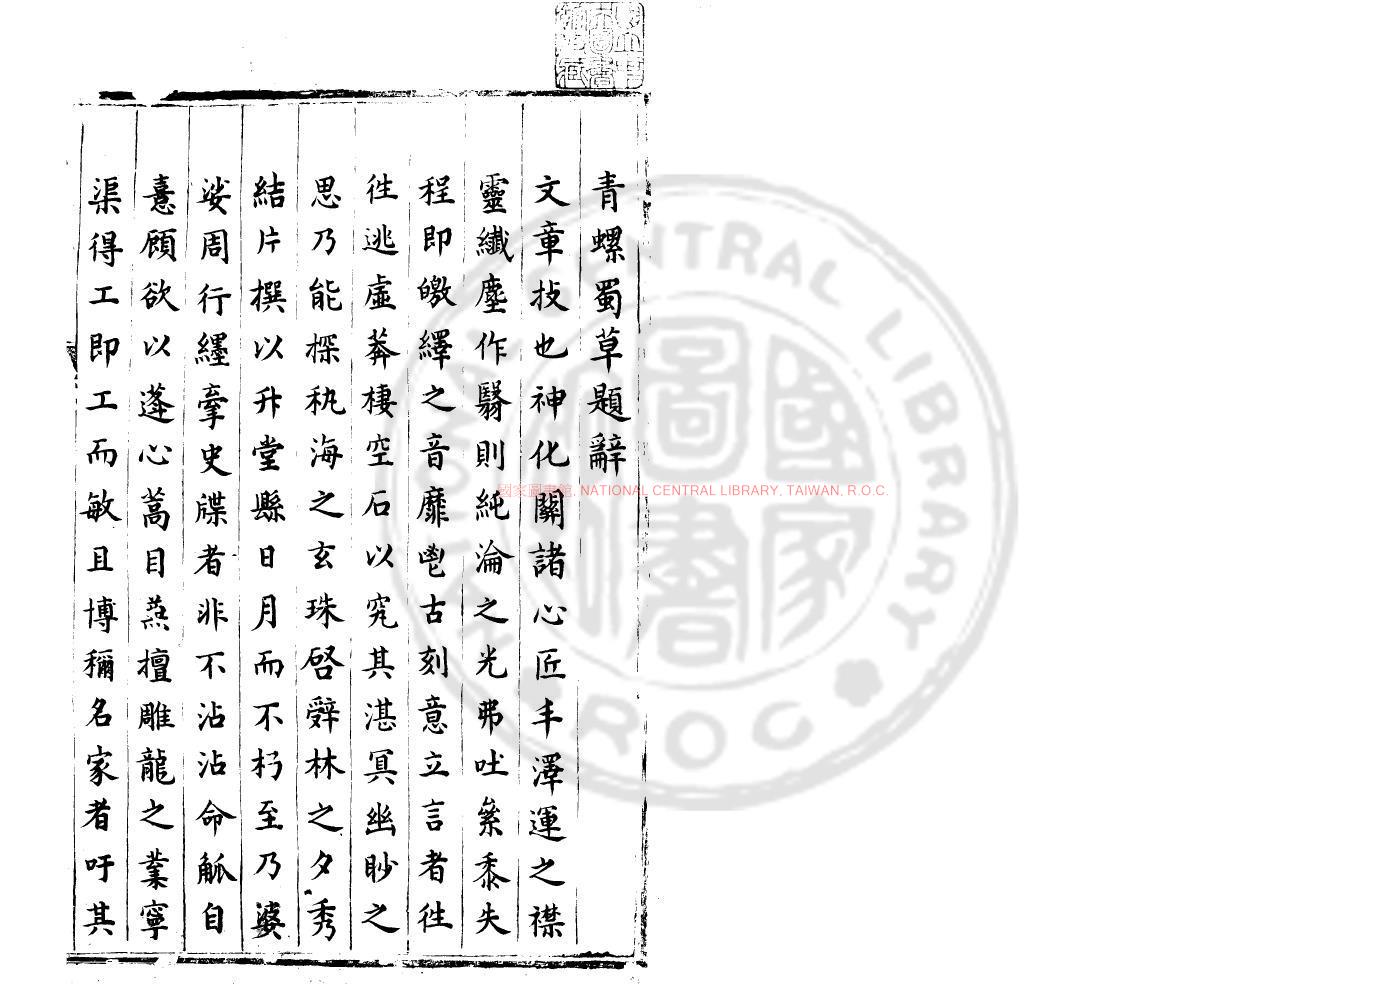 青螺蜀草題辭
文章技也神化關諸心匠手澤運之襟
靈纖塵作翳則純淪之光弗吐絫黍失
程即皦繹之音靡鬯古刻意立言者徃
徃逃虛莽棲空石以究其湛冥幽眇之
思乃能探秇海之玄珠啓辭林之夕秀
結片撰以升堂縣日月而不朽至乃婆
娑周行纆牽史牒者非不沾沾命觚自
憙顧欲以蓬心蒿目燕檀雕龍之業寧
渠得工即工而敏且博稱名家者吁其
國家圖書館, NATIONAL CENTRAL LIBRARY, TAIWAN, R.O.C.
NATIONAL CENTRAL LIBRARY
R.O.C.
國家圖書